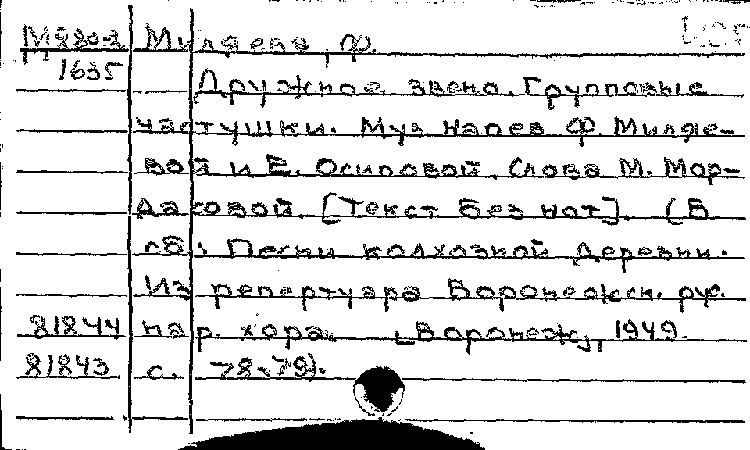 М980-2 Миляева, Ф.
1635
Дружное звено. Групповые
частушки. Муз. напев Ф. Миляе-
вой и Е. Осиповой. Слова М. Мор-
дасовой. [Текст без нот]. (В
сб.: Песни колхозной деревни.
Из репертуара Воронежск. рус.
81844 нар. хора. [Воронеж], 1949.
81843 с. 78-79).